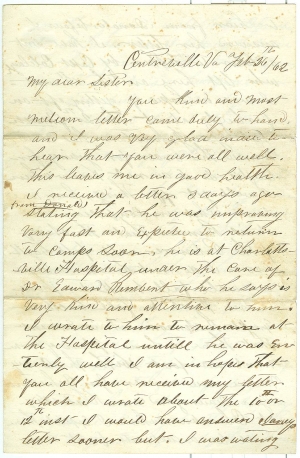 Centreville Va Feb 26th/62
My dear Sister
Your kind and most
welcom letter came duly to hand
and I was very glad indee to
hear that you were all well.
This leaves me in good health
I receive a letter 3 days ago
from
stating that he was improving
very fast an expecte to return
to camps soon he is at Charlotts-
ville Hospital under the care of
Dr Edwan Rembert who he says is
very kind and attentive to him.
I wrote to him to remain at
the Hospital untill he was en-
tirely well I am in hopes that
you all have receive my letter
which I wrote about the 10th or
12th inst I would have answered
letter sooner but I was wating